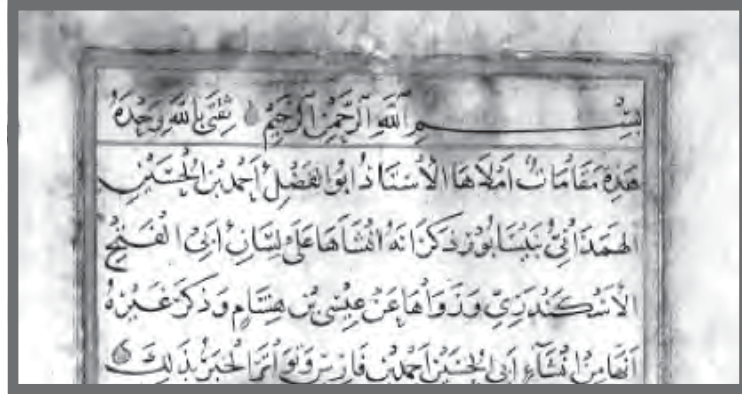 بِسْمِ ٱللَّهِ ٱلرَّحْمٰنِ ٱلرَّحِيمِ ثِقَتِي بِاللَّهِ وَحْدَهُ
هَذِهِ مَقَامَاتٌ أَمْلَاهَا الْأُسْتَاذُ أَبُو الْفَضْلِ أَحْمَدُ بْنُ الْحُسَيْنِ
الْهَمَذَانِيُّ بِنَيْسَابُورَ ذَكَرَ أَنَّهُ أَنْشَأَهَا عَلَى لِسَانِ أَبِي الْفَتْحِ
الْأَسْكَنْدَرِيِّ وَرَوَاهَا عَنْ عِيسَى بْنِ هِشَامٍ وَذَكَرَ غَيْرُهُ
أَنَّهَا مِنْ إِنْشَاءِ أَبِي الْحُسَيْنِ أَحْمَدَ بْنِ فَارِسٍ وَتَوَاتَرَ الْخَبَرُ بِذَلِكَ